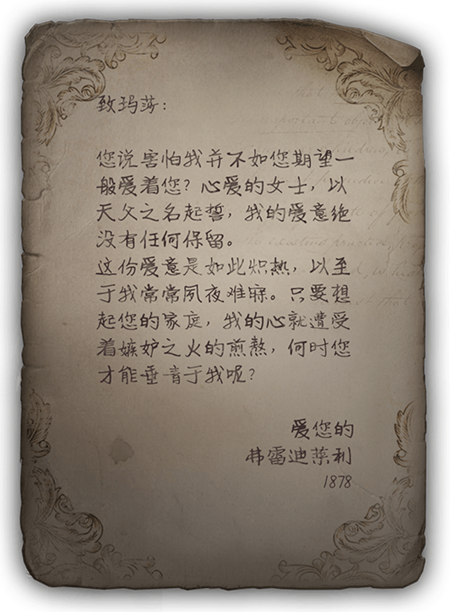 致玛莎：
您说害怕我并不如您期望一
般爱着您？心爱的女士，以
天父之名起誓，我的爱意绝
没有任何保留。
这份爱意是如此炽热，以至
于我常常夙夜难寐。只要想
起您的家庭，我的心就遭受
着嫉妒之火的煎熬，何时您
才能垂青于我呢？
爱您的
弗雷迪莱利
1878